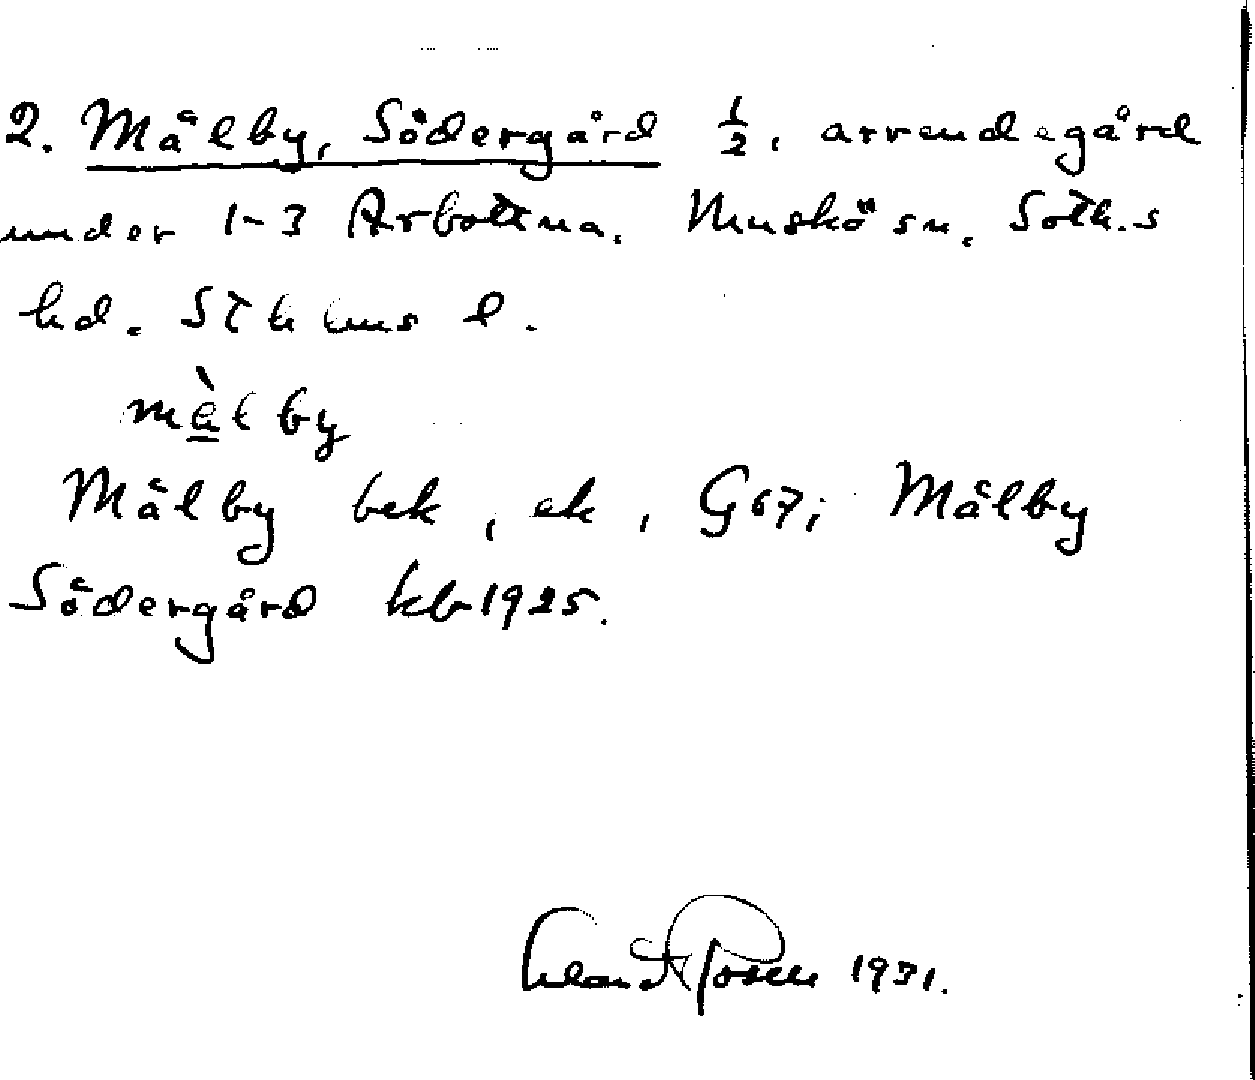 2. Målby, Södergård 1/2, arrendegård
under 1-3 Arbottna. Muskö sn, Soth.s
hd. Sthlms l.
må̀lby
Målby bek, ek, G67; Målby
Södergård kb 1925.
1931.